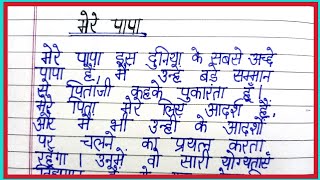 मेरे पापा
मेरे पापा इस दुनिया के सबसे अच्छे
पापा हैं। मैं उन्हें बड़े सम्मान
से पिताजी कहके पुकारता हूँ।
मेरे पिता मेरे लिए आदर्श हैं,
और मैं भी उन्हीं के आदर्शों
पर चलने का प्रयत्न करता
रहूँगा। उनमें वो सारी योग्यताएँ